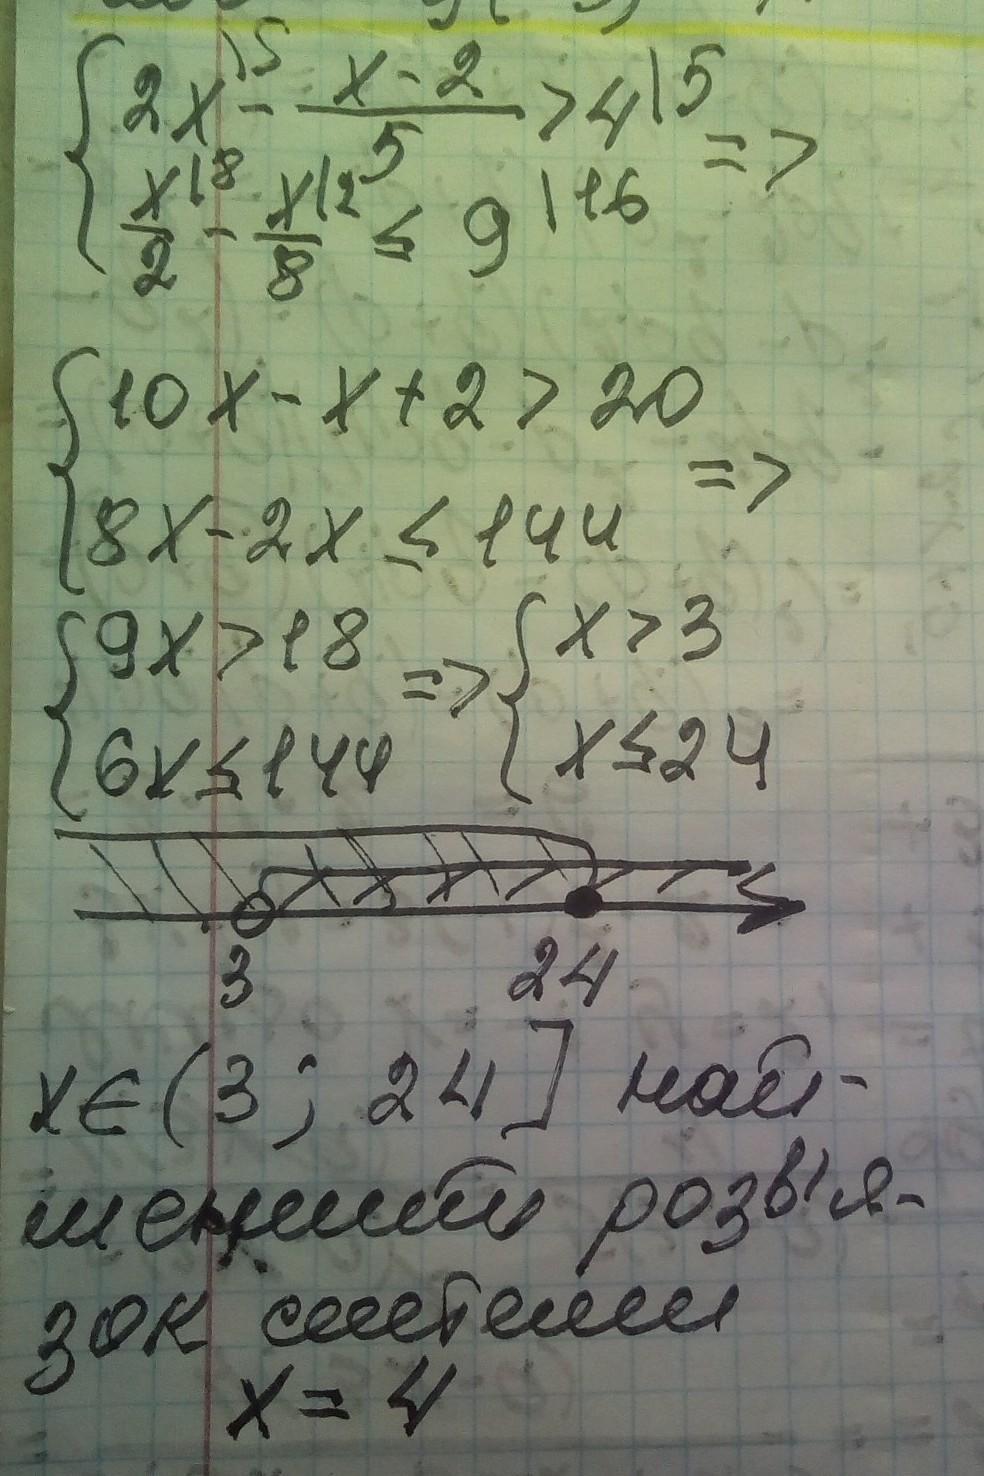 { 2x |5 - (x-2)/5 > 4 |5 =>
{ x/2 |8 - x/8 |2 ≤ 9 |16
{ 10x - x + 2 > 20
{ 8x - 2x ≤ 144 =>
{ 9x > 18 => { x > 3
{ 6x ≤ 144 { x ≤ 24
3 24
x∈(3; 24] най-
менший розв'я-
зок системи
x = 4